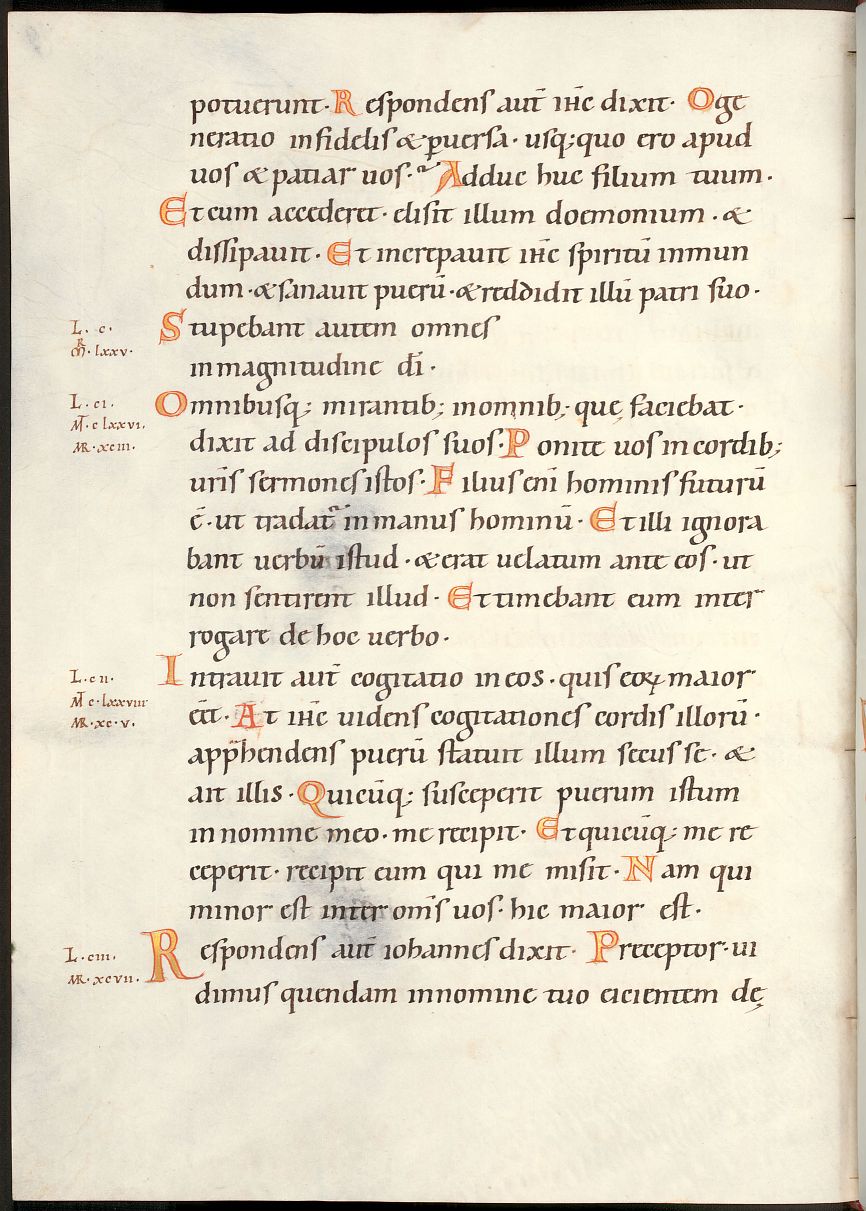 potuerunt. Respondens aut̄ ih̄c dixit. O ge
neratio infidelis & ꝑuersa. usq;quo ero apud
uos & patiar uos. Adduc huc filium tuum.
Et cum accederet. elisit illum doemonium. &
dissipauit. Et increpauit ih̄c spiritū inmun
dum. & sanauit puerū. & reddidit illū patri suo.
L. c.
M̄R. lxxv.
Stupebant autem omnes
in magnitudine dī.
L. ci.
M̄T. clxxvi.
MR. xciii.
Omnibusq; mirantib; in omnib; quę faciebat.
dixit ad discipulos suos. Ponite uos in cordib;
ur̄is sermones istos. Filius eni hominis futurū
ē. ut tradat᷑ in manus hominū. Et illi ignora
bant uerbū istud. & erat uelatum ante eos. ut
non sentirent illud. Et timebant eum inter
rogare de hoc uerbo.
L. cii.
M̄T clxxviii
MR. xcv.
Intrauit aut̄ cogitatio in eos. quis eoꝝ maior
eēt. At ih̄c uidens cogitationes cordis illorū.
app̄hendens puerū statuit illum secus se. &
ait illis. Quicūq; susceperit puerum istum
in nomine meo. me recipit. Et quicūq; me re
ceperit. recipit eum qui me misit. Nam qui
minor est inter om̄s uos. hic maior est.
L. ciii.
MR. xcvii.
Respondens aut̄ iohannes dixit. Preceptor. ui
dimus quendam in nomine tuo eicientem dę